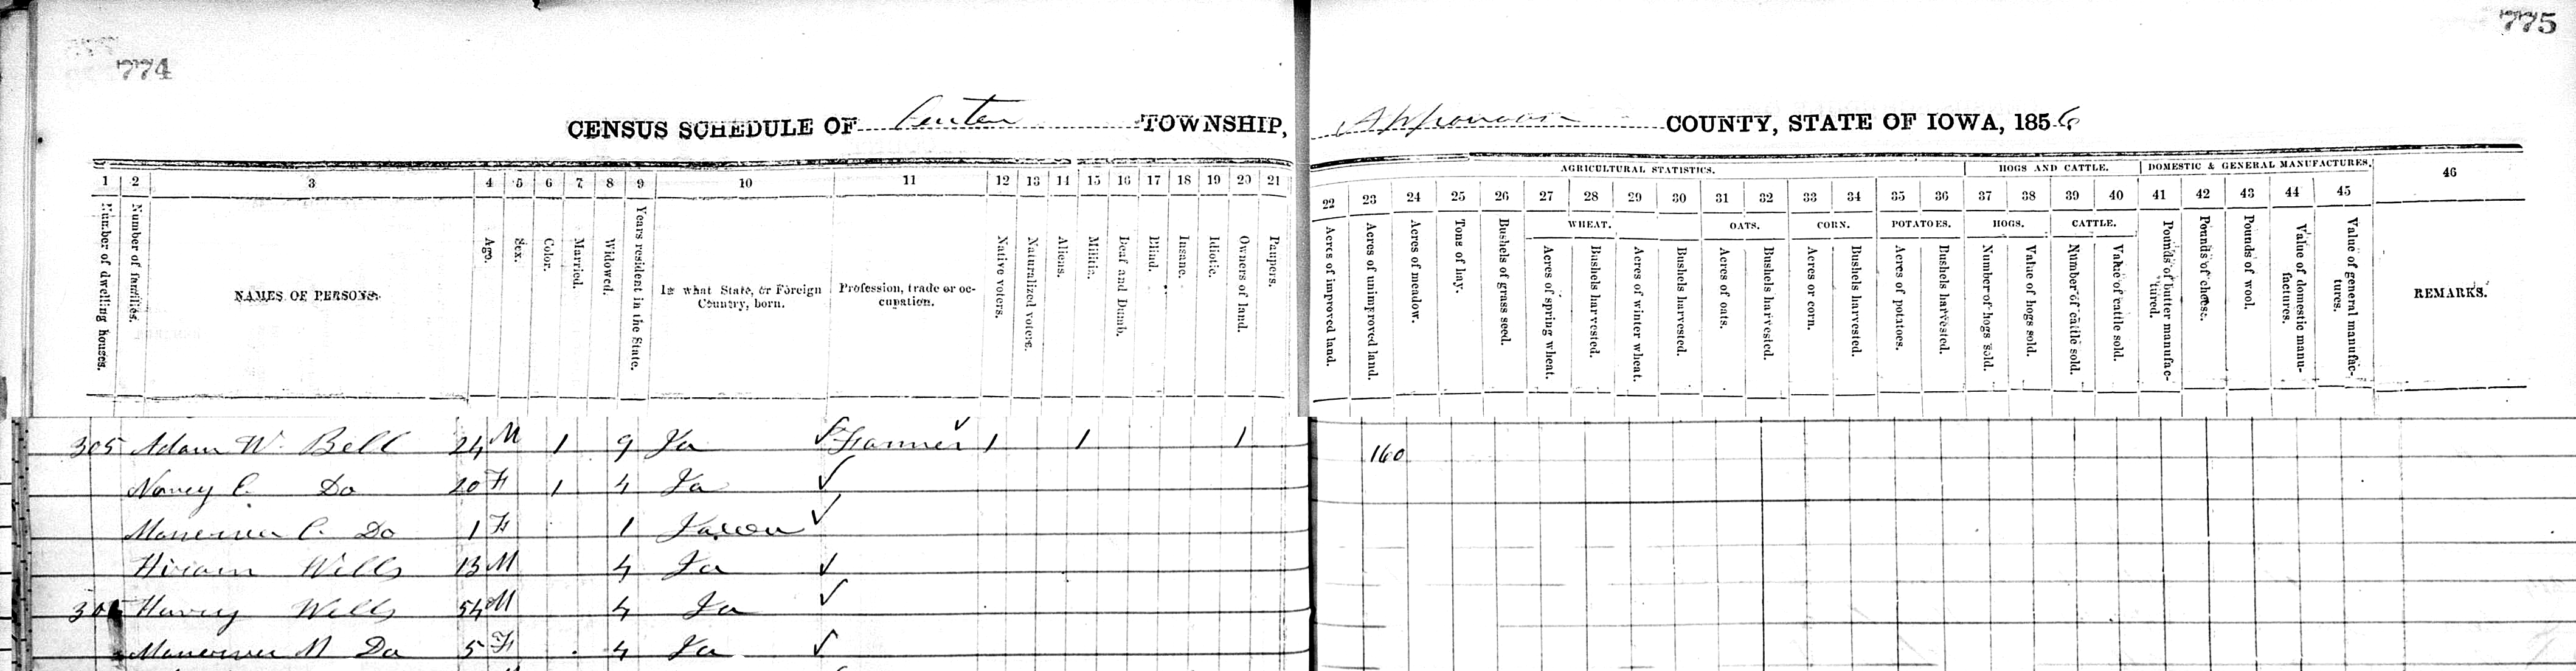 774
775
CENSUS SCHEDULE OF Center TOWNSHIP, Appanoose COUNTY, STATE OF IOWA, 1856
AGRICULTURAL STATISTICS. HOGS AND CATTLE. DOMESTIC & GENERAL MANUFACTURES.
1 2 3 4 5 6 7 8 9 10 11 12 13 14 15 16 17 18 19 20 21 22 23 24 25 26 27 28 29 30 31 32 33 34 35 36 37 38 39 40 41 42 43 44 45 46
WHEAT. OATS. CORN. POTATOES. HOGS. CATTLE.
Number of dwelling houses.
Number of families.
NAMES OF PERSONS.
Age.
Sex.
Color.
Married.
Widowed.
Years resident in the State.
In what State, or Foreign
Country, born.
Profession, trade or oc-
cupation.
Native voters.
Naturalized voters.
Aliens.
Militia.
Deaf and Dumb.
Blind.
Insane.
Idiotic.
Owners of land.
Paupers.
Acres of improved land.
Acres of unimproved land.
Acres of meadow.
Tons of hay.
Bushels of grass seed.
Acres of spring wheat.
Bushels harvested.
Acres of winter wheat.
Bushels harvested.
Acres of oats.
Bushels harvested.
Acres or corn.
Bushels harvested.
Acres of potatoes.
Bushels harvested.
Number of hogs sold.
Value of hogs sold.
Number of cattle sold.
Value of cattle sold.
Pounds of butter manufac-
tured.
Pounds of cheese.
Pounds of wool.
Value of domestic manu-
factures.
Value of general manufac-
tures.
REMARKS.
305 Adam W. Bell 24 M 1 9 Ia ✓ Farmer ✓ 1 1 1 160
Nancy C. Do 20 F 1 4 Ia ✓
C. Do 1 F 1 ✓
Hiram Wells 13 M 4 Ia ✓
Harvey Wells 54 M 4 Ia ✓
M Do 5 F 4 Ia ✓